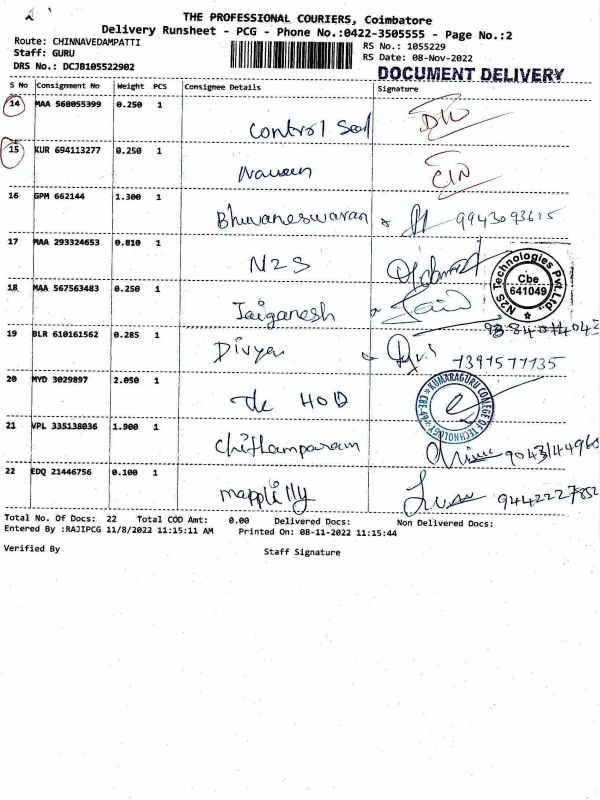 THE PROFESSIONAL COURIERS, Coimbatore
Delivery Runsheet - PCG - Phone No.:0422-3505555 - Page No.:2
Route: CHINNAVEDAMPATTI
RS No.: 1055229
Staff: GURU
RS Date: 08-Nov-2022
DRS No.: DCJB105522902
DOCUMENT DELIVERY
S No Consignment No Weight PCS Consignee Details Signature
14 MAA 568055399 0.250 1
Control Seal
15 KUR 694113277 0.250 1
Naveen
16 GPM 662144 1.300 1
Bhuvaneswaran 9943093615
17 MAA 293324653 0.810 1
N2S
N2S Technologies Pvt.Ltd.,
Cbe
641049
18 MAA 567563483 0.250 1
Jaiganesh
19 BLR 610161562 0.285 1
Divya
20 MYD 3029897 2.050 1
The HOD
KUMARAGURU COLLEGE OF TECHNOLOGY
21 VPL 335138036 1.900 1
Chithamparam
22 EDQ 21446756 0.100 1
9442227852
Total No. Of Docs: 22 Total COD Amt: 0.00 Delivered Docs: Non Delivered Docs:
Entered By :RAJIPCG 11/8/2022 11:15:11 AM Printed On: 08-11-2022 11:15:44
Verified By
Staff Signature